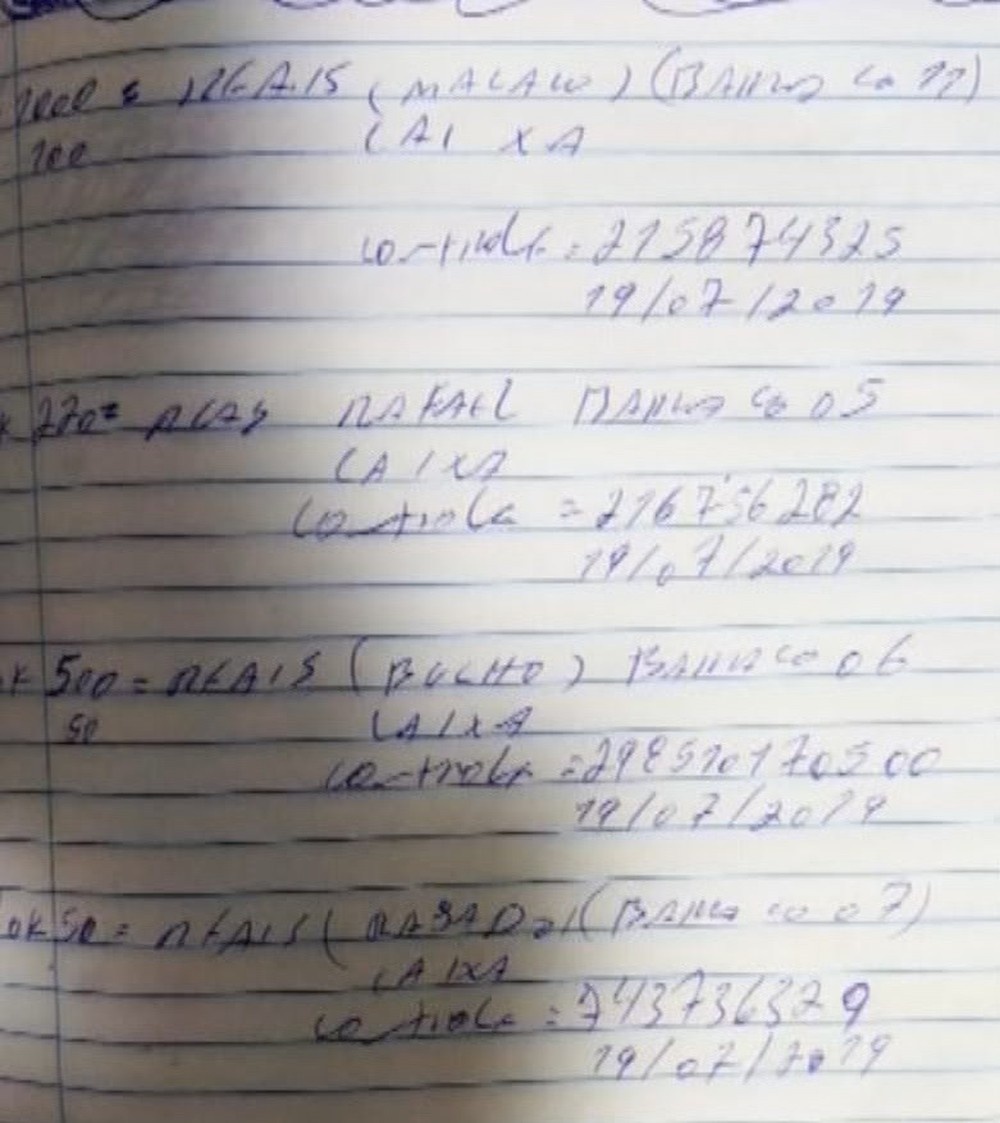 1000 = REAIS (MACACO) (BARRACO 11)
100 CAIXA
controle = 215874325
19/07/2019
270 = REAIS RAFAEL BARRACO 05
CAIXA
controle = 216756282
19/07/2019
OK 500 = REAIS (BUCHO) BARRACO 06
50 CAIXA
controle = 298510170500
19/07/2019
OK 50 = REAIS (BARRACO 07)
CAIXA
controle = 743736329
19/07/2019